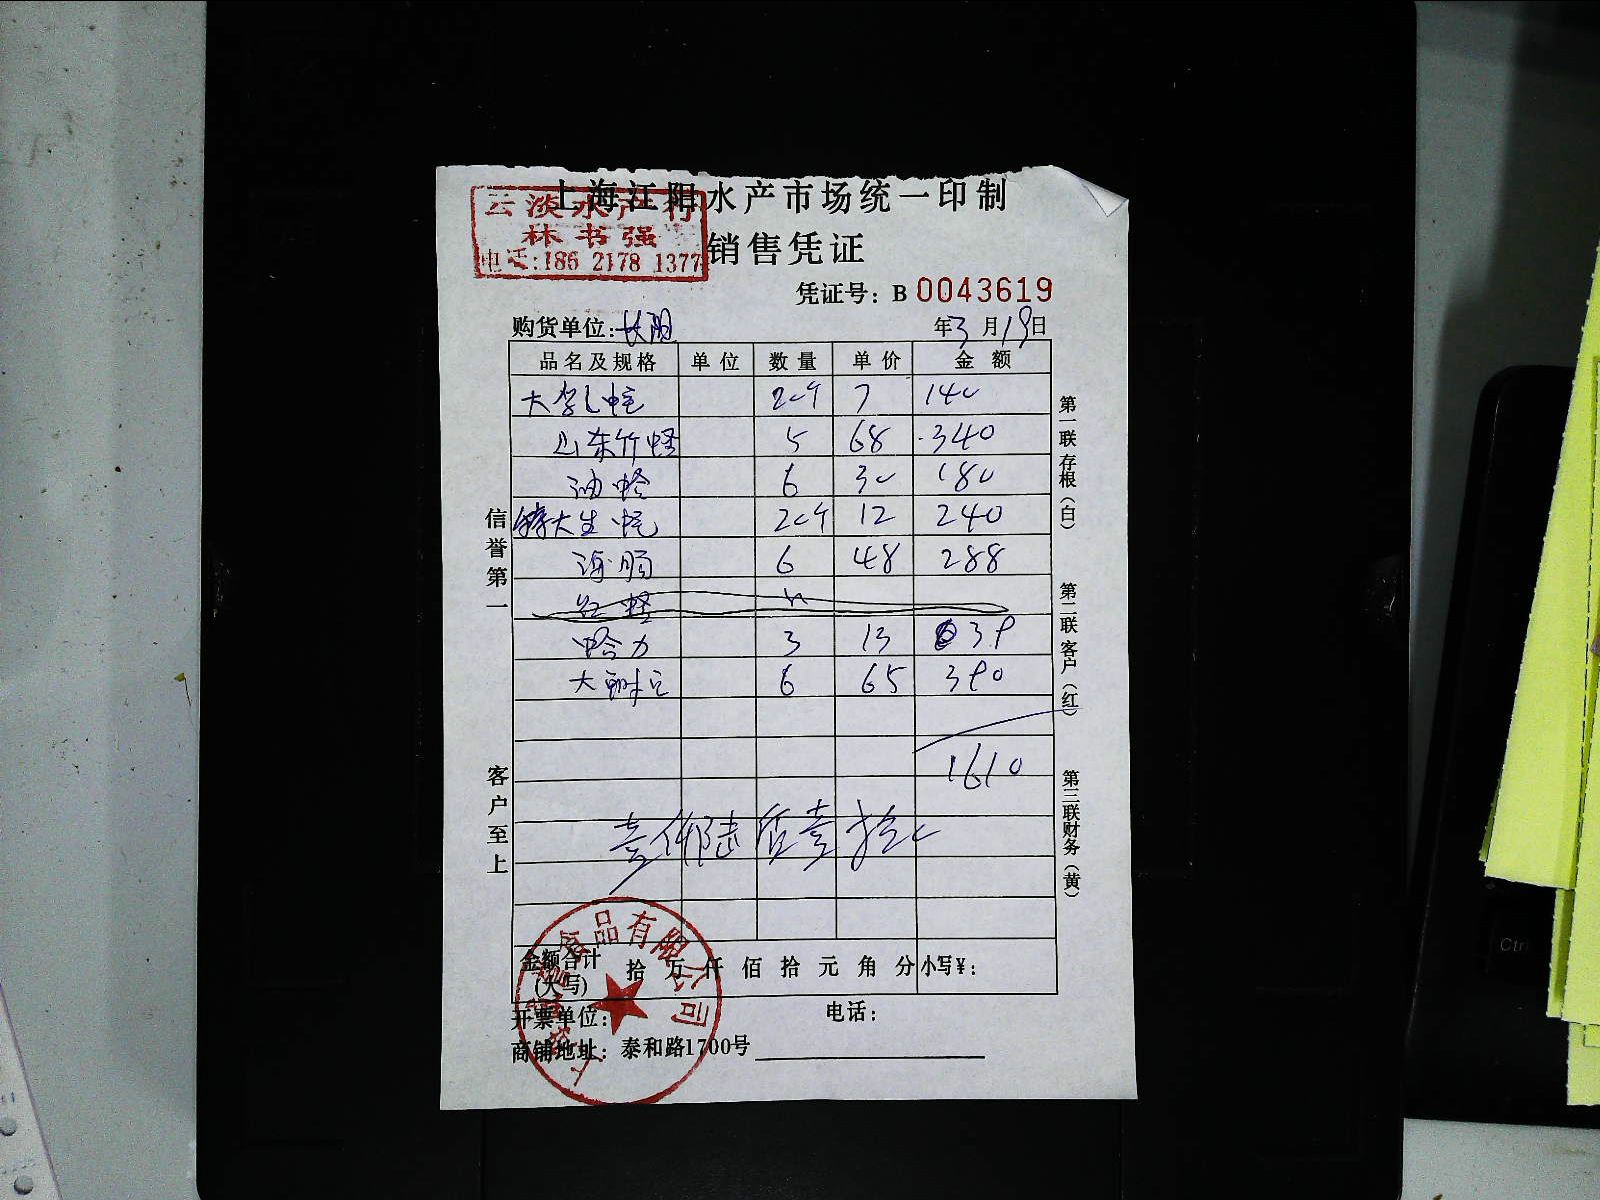 上海江阳水产市场统一印制
云淡水产行
林书强
电话:186 2178 1377
销售凭证
凭证号: B 0043619
购货单位: 长阳
年3月19日
品名及规格 单位 数量 单价 金额
20个 7 140
山东竹蛏 5 68 340
油蛤 6 30 180
特大生蚝 20个 12 240
海肠 6 48 288
红蛏
哈力 3 13 39
大 6 65 390
1610
壹仟陆佰壹拾
金额合计(大写) 拾 万 仟 佰 拾 元 角 分 小写¥:
开票单位: 电话:
商铺地址: 泰和路1700号
信誉第一
客户至上
第一联 存根(白)
第二联 客户(红)
第三联 财务(黄)
食品有限公司
Ctrl